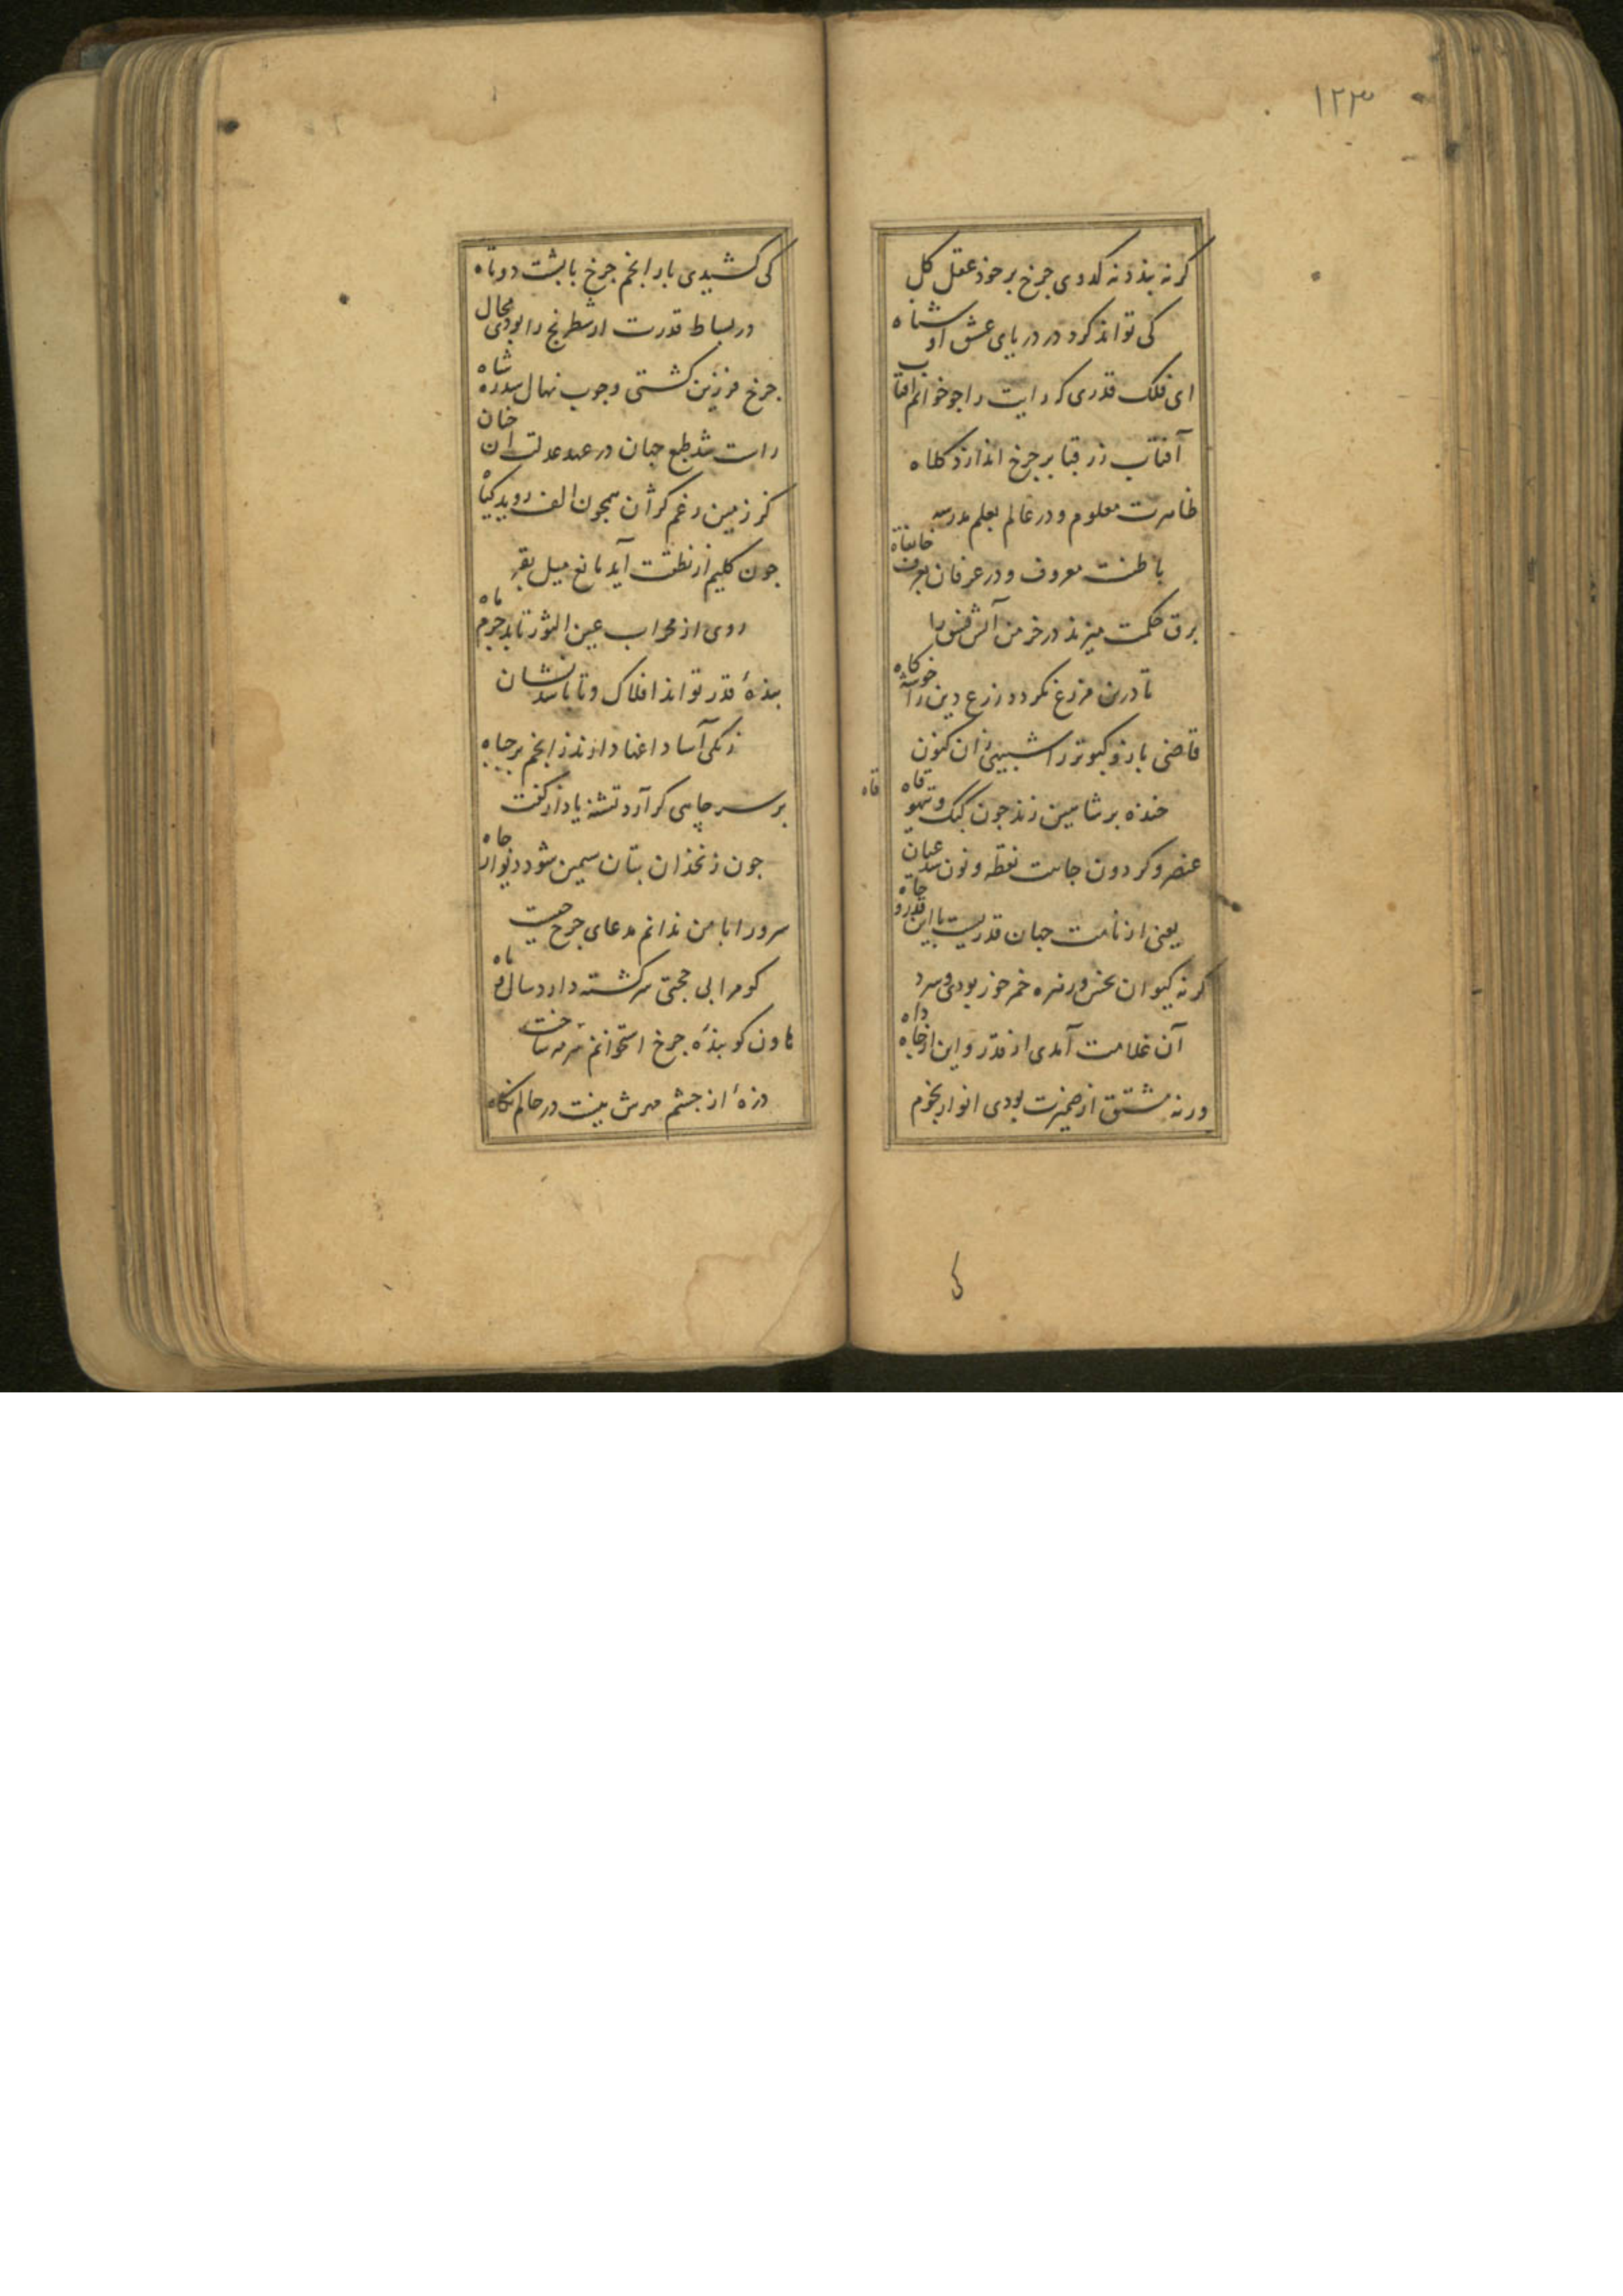 ۱۲۳
کرنه بندد نه کدوی جرخ بر خوذ عقل کل
کی تواند کرد در دریای عشق او شناه
ای فلک قدری که رایت را جو خوانم افتاب
آفتاب زر قبا بر جرخ اندازد کلاه
ظاهرت معلوم و در عالم بعلم مدرسه
باطنت معروف و در عرفان بعرف خانقاه
برق حکمت میزند در خرمن آتش فسق را
تا درین مزرع نکردد زرع دین را خوشه کاه
قاضی باز و کبوتر را شبیبی زان کنون
خنده بر شاهین زند جون کبک و تیهو قاه قاه
عنصر و کردون جاهت نقطه و نون شد عیان
یعنی از نامت جهان قدریست با این قدر و جاه
کرنه کیوان نحس و زهره خمر خوز بودی و سرد
آن غلامت آمدی از قدر و این از جاه داه
ورنه مشتق از ضمیرت بودی انوار نجوم
کی
کی کشیدی بار انجم جرخ با پشت دوتاه
در بساط قدرت ار شطرنج را بودی مجال
جرخ فرزین کشتی و جوب نهال سدره شاه
راست شد طبع جهان در عهد عدلت ان جنان
کز زمین رغم کژان همجون الف روید کیاه
جون کلیم از نطقت آید مانع میل بقر
روی از محراب عین الثور تابد جرم ماه
بنده قدر تواند افلاک و تا باشد نشان
زنکی آسا داغها دارند ز انجم بر جباه
بر سر چاهی کر آرد تشنه یاد از کفت
جون زنخدان بتان سیمین شود دیوار جاه
سرورا با من ندانم مدعای جرخ جیست
کو مرا بی حجتی سرکشته دارد سال و ماه
هاون کوبنده جرخ استخوانم سرمه ساخت
ذره از جشم مهرش نیست در حالم نکاه